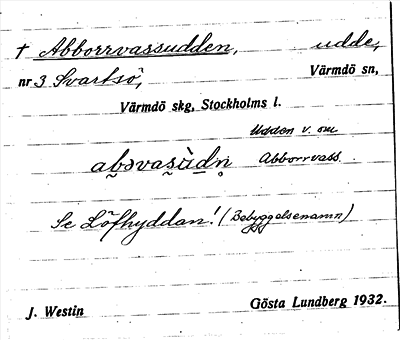 † Abborrvassudden, udde,
nr 3 Svartsö, Värmdö sn,
Värmdö skg, Stockholms l.
Udden v. om
abɔvasùdn̥ Abborrvass.
Se Löfhyddan! (Bebyggelsenamn)
J. Westin Gösta Lundberg 1932.